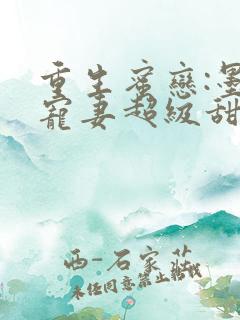 重生蜜戀:墨
寵妻超級甜
西-石家莊
未任同意禁止轉載